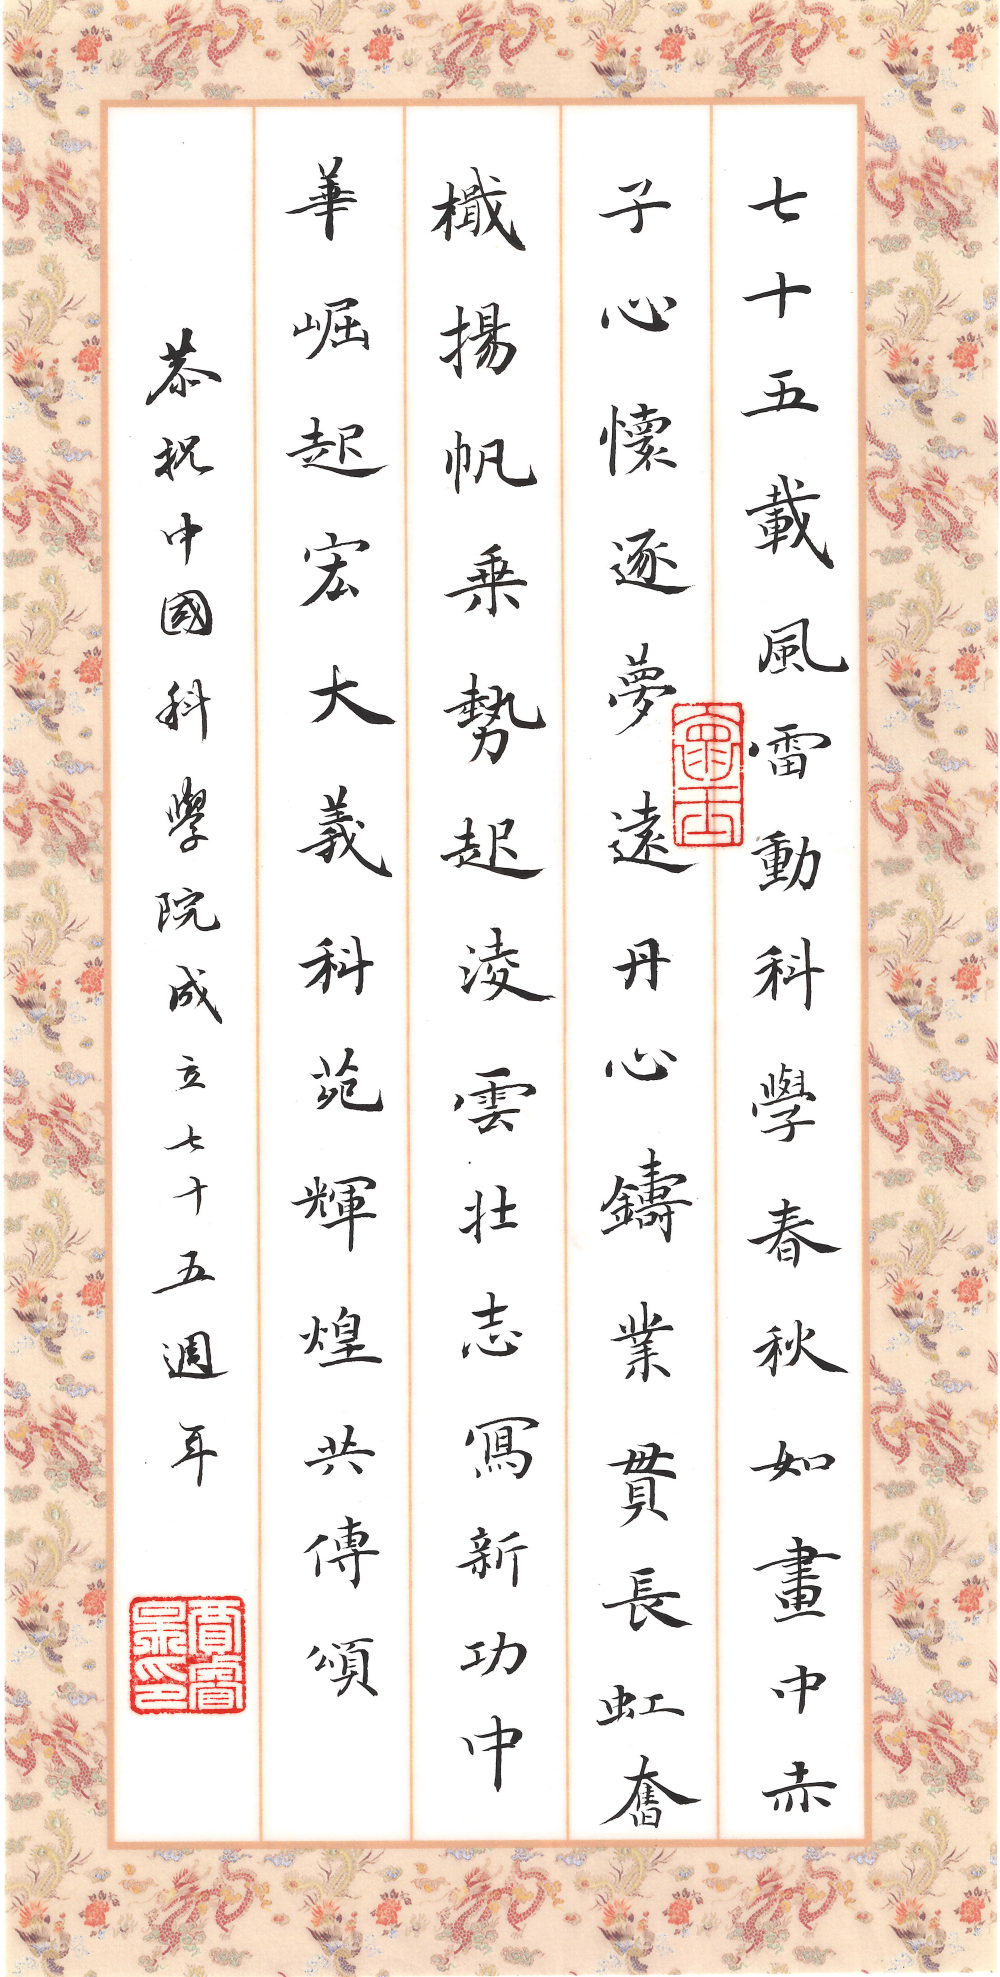 七十五載風雷動科學春秋如畫中赤
子心懷逐夢遠丹心鑄業貫長虹奮
檝揚帆乗勢起淩雲壯志寫新功中
華崛起宏大義科苑輝煌共傳頌
恭祝中國科學院成立七十五週年